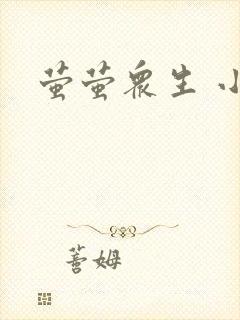 萤萤众生 小
蔷姆